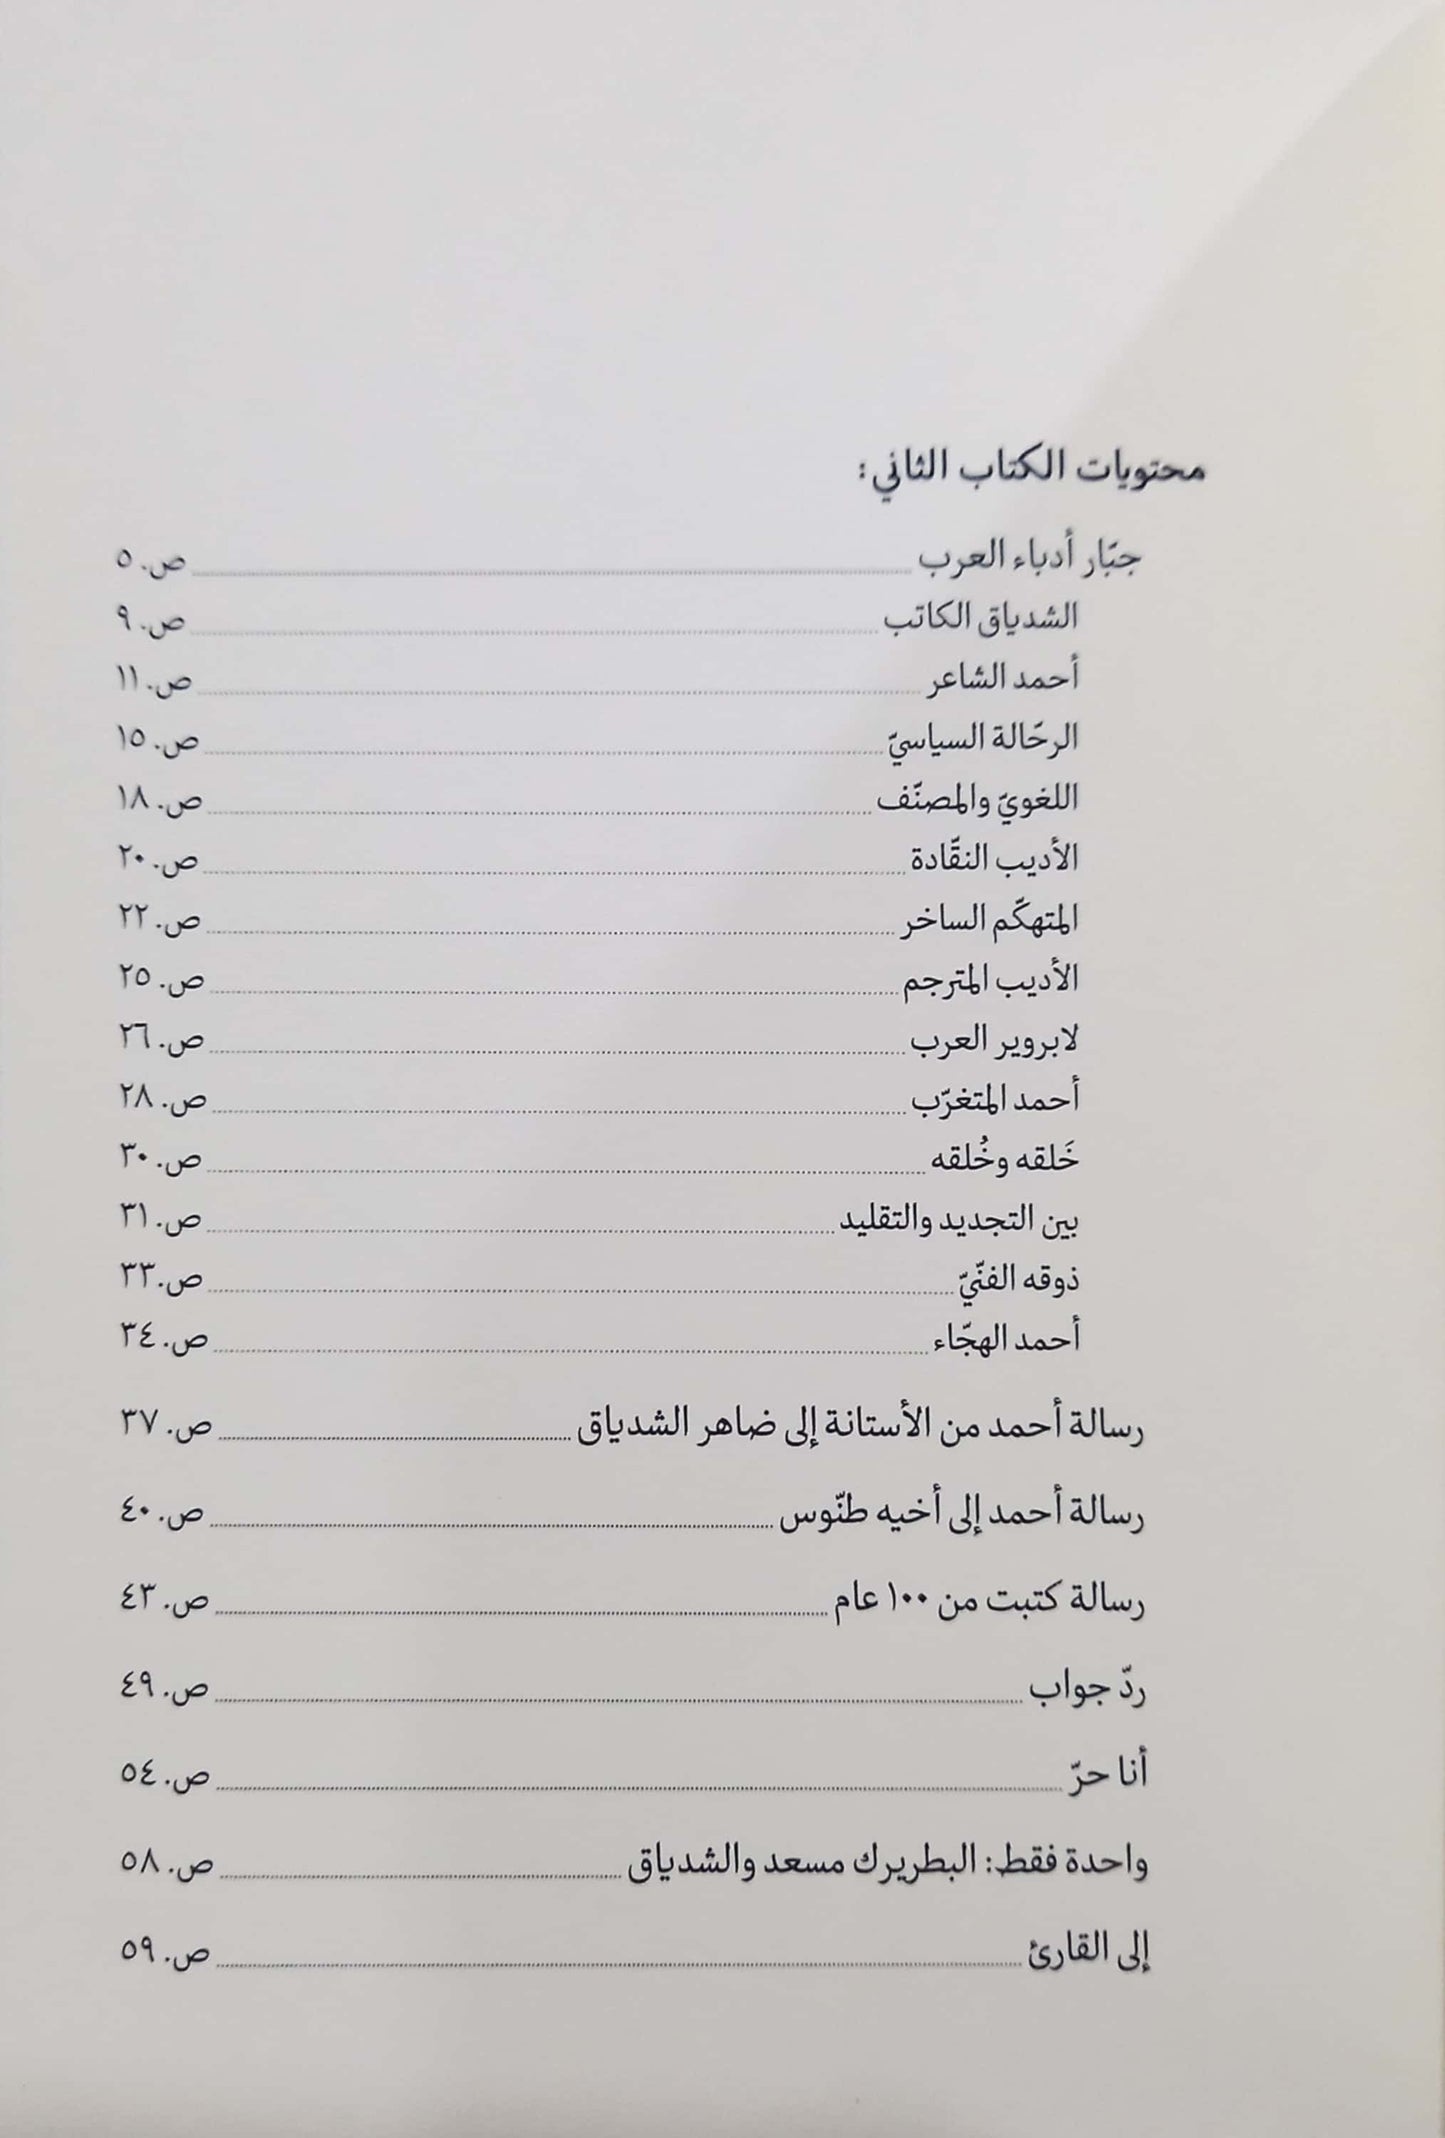 محتويات الكتاب الثاني:
جبّار أدباء العرب ص. ٥
الشدياق الكاتب ص. ٩
أحمد الشاعر ص. ١١
الرحّالة السياسيّ ص. ١٥
اللغويّ والمصنّف ص. ١٨
الأديب النقّادة ص. ٢٠
المتهكّم الساخر ص. ٢٢
الأديب المترجم ص. ٢٥
لابروير العرب ص. ٢٦
أحمد المتغرّب ص. ٢٨
خَلقه وخُلقه ص. ٣٠
بين التجديد والتقليد ص. ٣١
ذوقه الفنّيّ ص. ٣٣
أحمد الهجّاء ص. ٣٤
رسالة أحمد من الأستانة إلى ضاهر الشدياق ص. ٣٧
رسالة أحمد إلى أخيه طنّوس ص. ٤٠
رسالة كتبت من ١٠٠ عام ص. ٤٣
ردّ جواب ص. ٤٩
أنا حرّ ص. ٥٤
واحدة فقط: البطريرك مسعد والشدياق ص. ٥٨
إلى القارئ ص. ٥٩